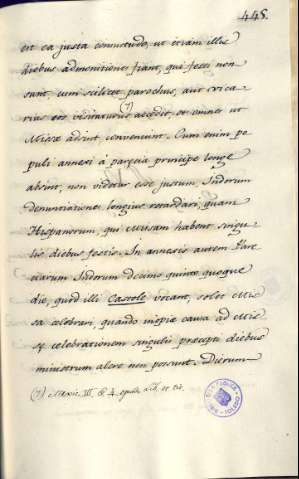 445.
erit ea justa consuetudo, ut etiam illis
diebus admonitiones fiant, qui festi non
sunt, cum scilicet parochus, aut vica
rius eos visitaturus accedit, et omnes ut
(7)
Missæ adsint conveniunt. Cum enim po
puli annexi à parœcia principe longe
absint, non videtur esse justum Indorum
denuntiationes longius retardari, quam
Hispanorum, qui Missam habent singu
lis diebus festis. In annexis autem Paroe
ciarum Indorum decimo quinto quoque
die, quod illi Castole vocant, solet Mis
sa celebrari, quando inopiæ causa ad Mis
sæ celebrationem singulis præcepti diebus
ministrum alere non possunt. Dierum
(7) Mexic. III. 4.
TOLEDO